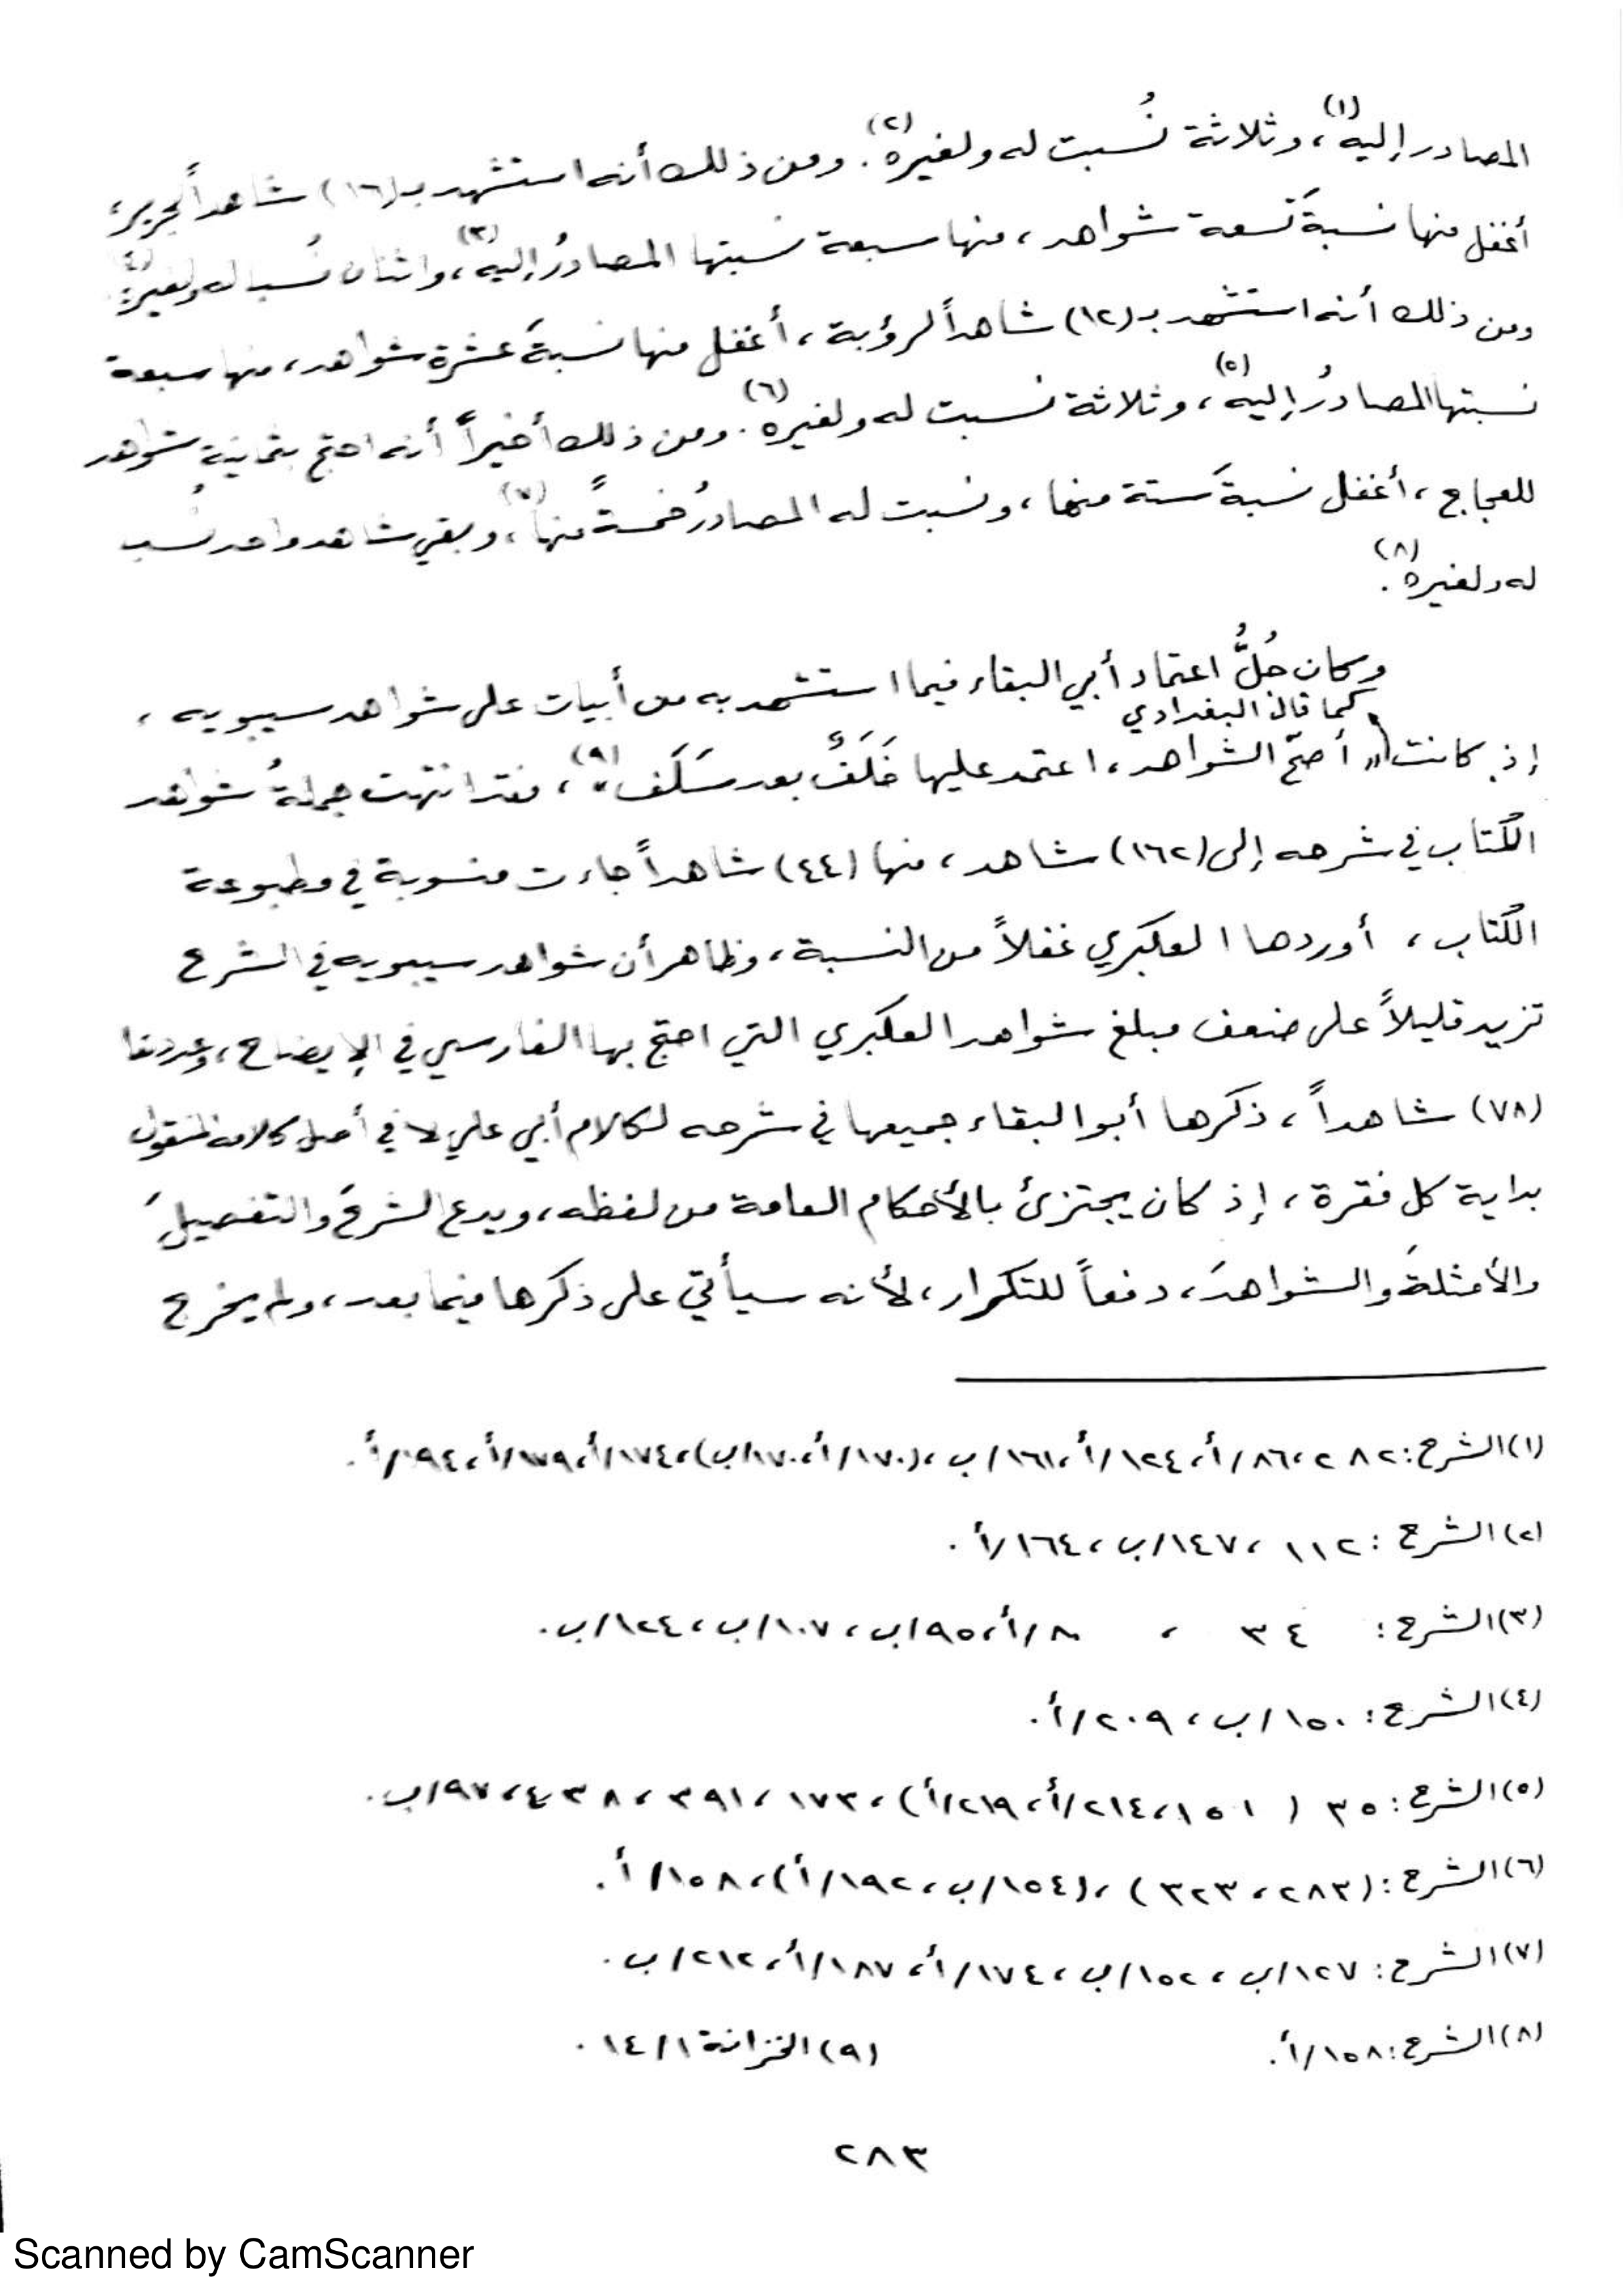 المصادر إليه(١)، وثلاثة نُسبت له ولغيره(٢). ومن ذلك أنه استشهد بـ(١٦) شاهداً لجرير،
أغفل منها نسبةَ تسعة شواهد، منها سبعة نسبتها المصادرُ إليه(٣)، واثنان نُسبا له ولغيره(٤).
ومن ذلك أنه استشهد بـ(١٢) شاهداً لرؤبة، أغفل منها نسبةَ عشرة شواهد، منها سبعة
نسبتها المصادرُ إليه(٥)، وثلاثة نسبت له ولغيره(٦). ومن ذلك أخيراً أنه احتج بثمانية شواهد
للعجاج، أغفل نسبةَ ستة منها، ونسبت له المصادرُ خمسةً منها(٧)، وبقي شاهد واحد نُسب
له ولغيره(٨).
وكان جُلُّ اعتماد أبي البقاء فيما استشهد به من أبيات على شواهد سيبويه،
كما قال البغدادي
إذ كانت "أصحّ الشواهد، اعتمد عليها خَلَفٌ بعد سَلَف"(٩)، فقد انتهت جملةُ شواهد
الكتاب في شرحه إلى (١٦٢) شاهد، منها (٤٤) شاهداً جاءت منسوبة في مطبوعة
الكتاب، أوردها العكبري غفلاً من النسبة، وظاهر أن شواهد سيبويه في الشرح
تزيد قليلاً على ضعف مبلغ شواهد العكبري التي احتج بها الفارسي في الإيضاح، وعددها
(٧٨) شاهداً، ذكرها أبو البقاء جميعها في شرحه لكلام أبي علي لا في أصل كلامه المنقول
بداية كل فقرة، إذ كان يجتزئ بالأحكام العامة من لفظه، ويدع الشرحَ والتفصيلَ
والأمثلةَ والشواهدَ، دفعاً للتكرار، لأنه سيأتي على ذكرها فيما بعد، ولم يخرج
(١) الشرح: ٢٨٢، ٨٦/أ، ١٢٤/أ، ١٦١/ب، (١٧٠/أ، ١٧٠/ب)، ١٧٤/أ، ١٧٩/أ، ١٩٤/أ.
(٢) الشرح: ١١٢، ١٤٧/ب، ١٦٤/أ.
(٣) الشرح: ٣٤، ٨٠/أ، ٩٥/ب، ١٠٧/ب، ١٢٤/ب.
(٤) الشرح: ١٥٠/ب، ٢٠٩/أ.
(٥) الشرح: ٣٥ (١٥١، ٢١٤/أ، ٢١٩/أ)، ١٧٣، ٣٩١، ٤٣٨، ٩٧/ب.
(٦) الشرح: (٢٨٣، ٣٢٣)، (١٥٤/ب، ١٩٢/أ)، ١٥٨/أ.
(٧) الشرح: ١٢٧/ب، ١٥٢/ب، ١٧٤/أ، ١٨٧/أ، ٢١٢/ب.
(٨) الشرح: ١٥٨/أ. (٩) الخزانة ١/١٤.
٢٨٣
Scanned by CamScanner